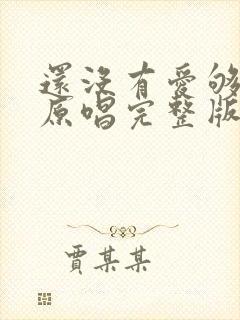 還沒有愛够
原唱完整版
賈某某